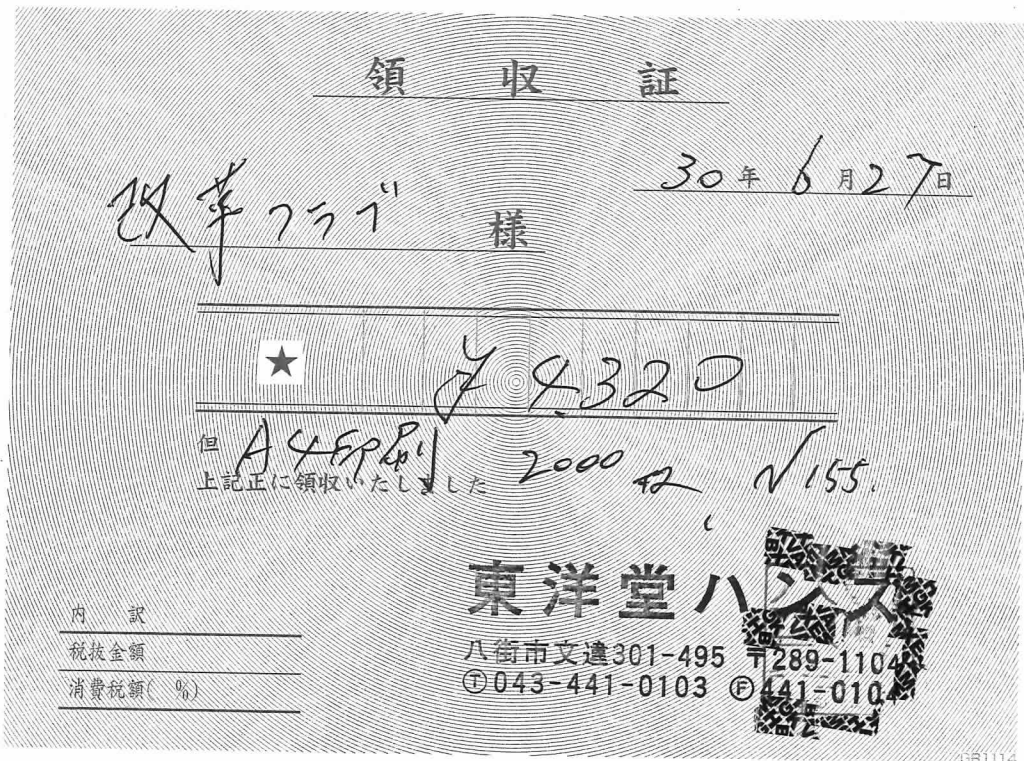 領収証
30年6月27日
改革クラブ 様
★ ¥4320
但 A4印刷 2000枚 №155.
上記正に領収いたしました
東洋堂ハンズ
八街市文違301-495 〒289-1104
Ⓣ043-441-0103 Ⓕ441-0104
内訳
税抜金額
消費税額( %)
GR1114